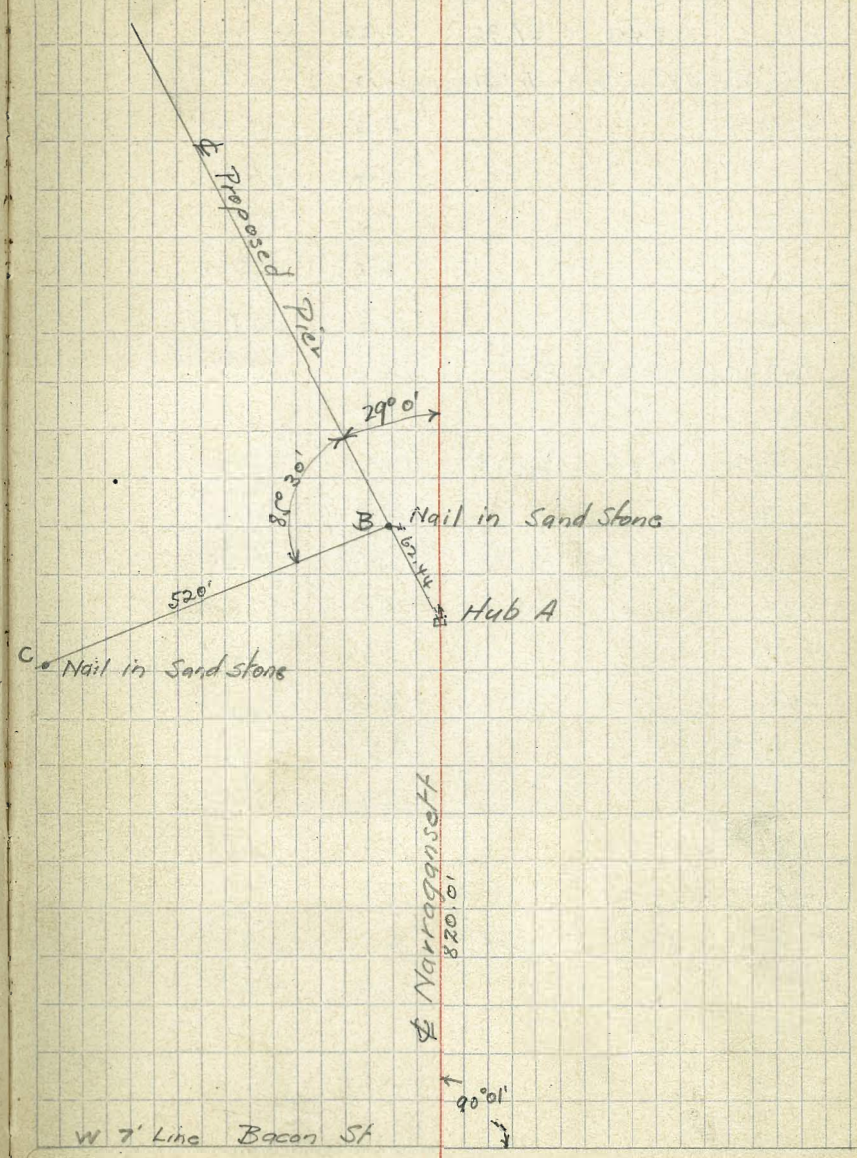 ℄ Proposed Pier
29° 0'
85° 30'
B Nail in Sand Stone
62.44
520'
Hub A
C Nail in Sand stone
℄ Narragansett
820.0'
90°01'
W 7' Line Bacon St